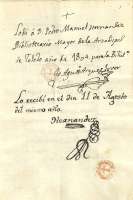 D. Pedro Manuel Hernandez
Bibliotecario Mayor de la Arzobispal
de Toledo año de 1804 para la
La recibi en el dia 11 de Agosto
del mismo año.
Hernandez